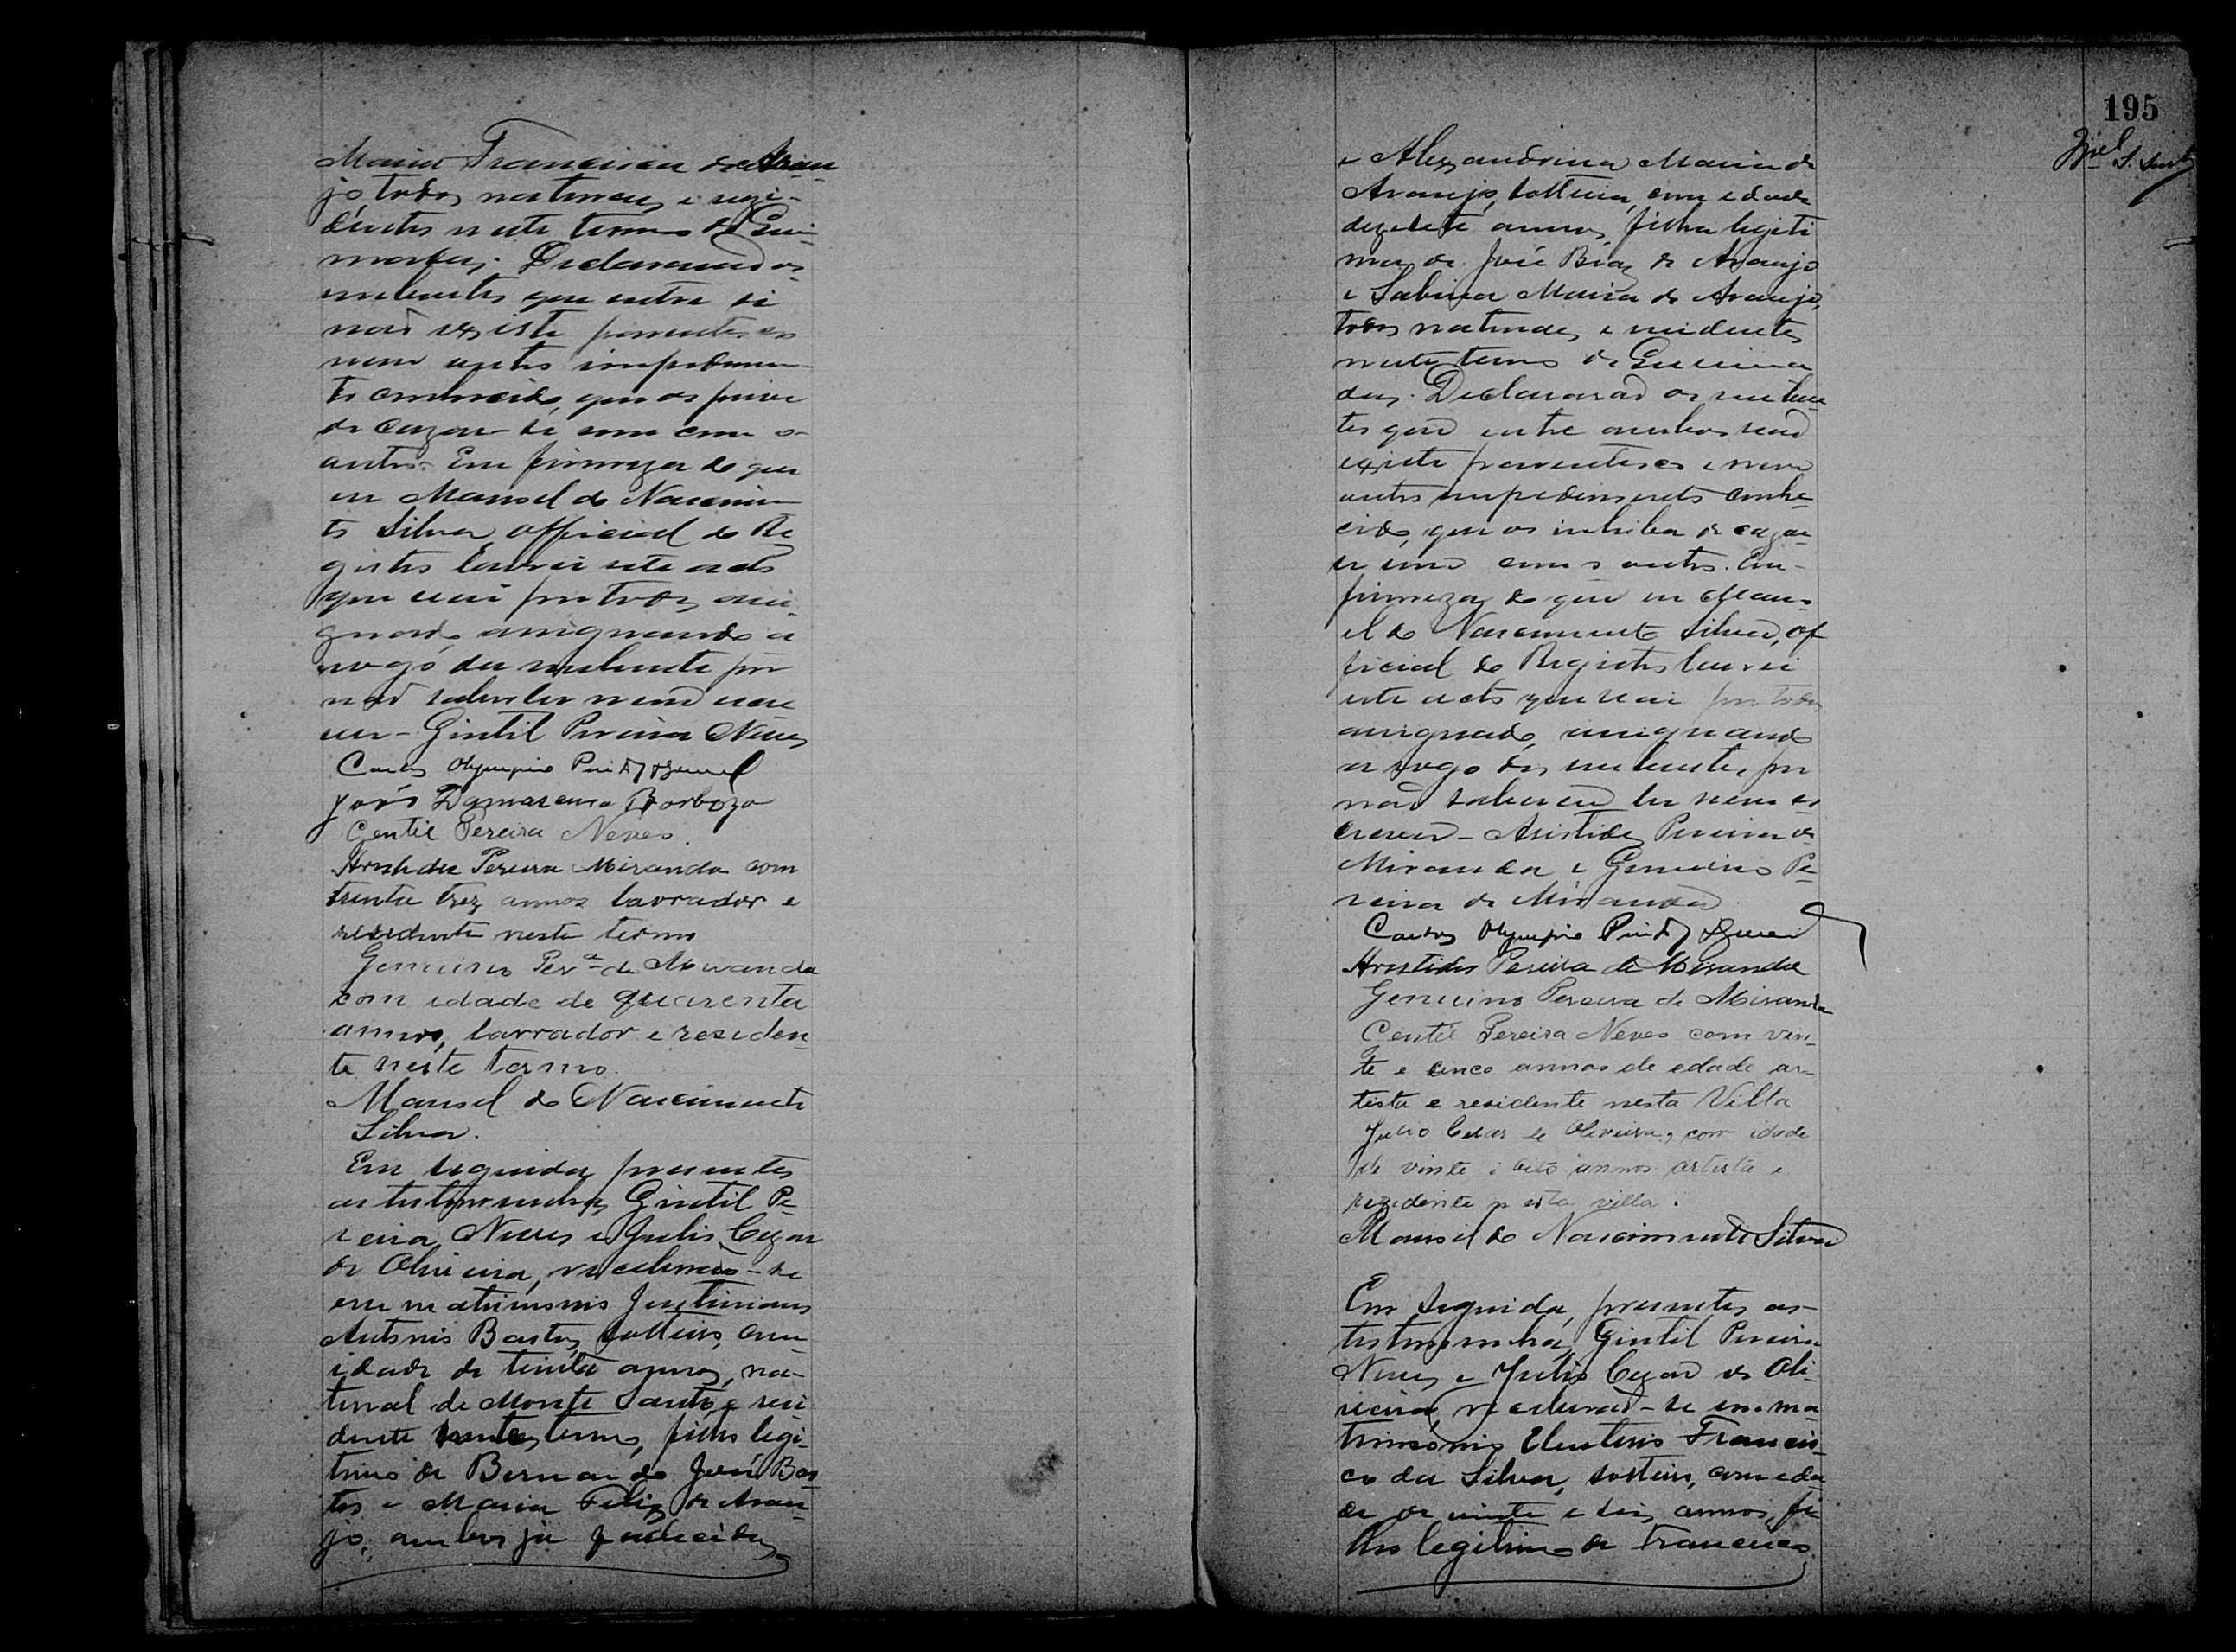 Maria Francisca de Arau-
jo, todos naturaes e rezi-
dentes neste termo de Quei-
madas. Declararão os
nubentes que entre si
não existe parentesco
nem outro impedimen-
to conhecido, que os prive
de cazar-se um com o
outro. Em firmeza do que
eu Manoel do Nascimen-
to Silva, official do Re-
gistro lavrei este acto
que vai por todos assi-
gnado, assignando a
rogo da nubente por
não saber ler nem escre
ver - Gintil Pereira Neves
Carlos Olympio
João Damaseno Barboza
Gentil Pereira Neves.
Aristides Pereira Miranda com
trinta trez annos lavrador e
residente neste termo
Genuino Per.ª de Miranda
com idade de quarenta
annos, lavrador e residen-
te neste termo.
Manoel do Nascimento
Silva.
Em seguida, presentes
as testemunhas Gintil Pe-
reira Neves e Julio Cezar
de Oliveira, receberão-se
em matrimonio Justiniano
Antonio Bastos, solteiro, com
idade de trinta annos, na-
tural de Monte Santo, e resi
dente neste termo, filho legi-
timo de Bernardo José Bas
tos e Maria Feliz de Arau-
jo, ambos já fallecidos,
195
e Alexandrina Maria de
Araujo, solteira, com edade
dezesete annos, filha legiti
ma de José Braz de Araujo
e Sabina Maria de Araujo,
todos naturaes e residentes
neste termo de Queima
das. Declararão os nuben
tes que entre ambos não
existe parentesco e nem
outro impedimento conhe-
cido, que os inhiba de cazar
se um com o outro. Em
firmeza do que eu Mano-
el do Nascimento Silva, of
ficial do Registro lavrei
este acto que vai por todos
assignado, assignando
a rogo dos nubentes, por
não saberem ler nem es
crever - Aristides Pereira de
Miranda e Genuino Pe-
reira de Miranda
Carlos Olympio
Aristides Pereira de Miranda
Genuino Pereira de Miranda
Gentil Pereira Neves com vin-
te e cinco annos de edade ar-
tista e residente nesta Villa
Julio Cezar de Oliveira, com idade
de vinte i oito annos artista e
rezidente n esta villa.
Manoel do Nascimento Silva
Em seguida, presentes as
testemunhas Gintil Pereira
Neves e Julio Cezar de Oli-
veira, receberão-se em ma
trimonio Eleuterio Francis-
co da Silva, solteiro, com eda
de de vinte e dois annos, fi-
lho legitimo de Francisco